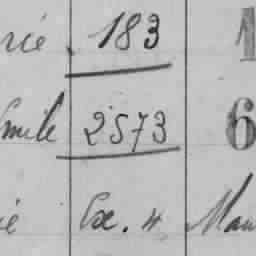 rie 183 1
Emile 2573 6
ie Ex. 4 Mau